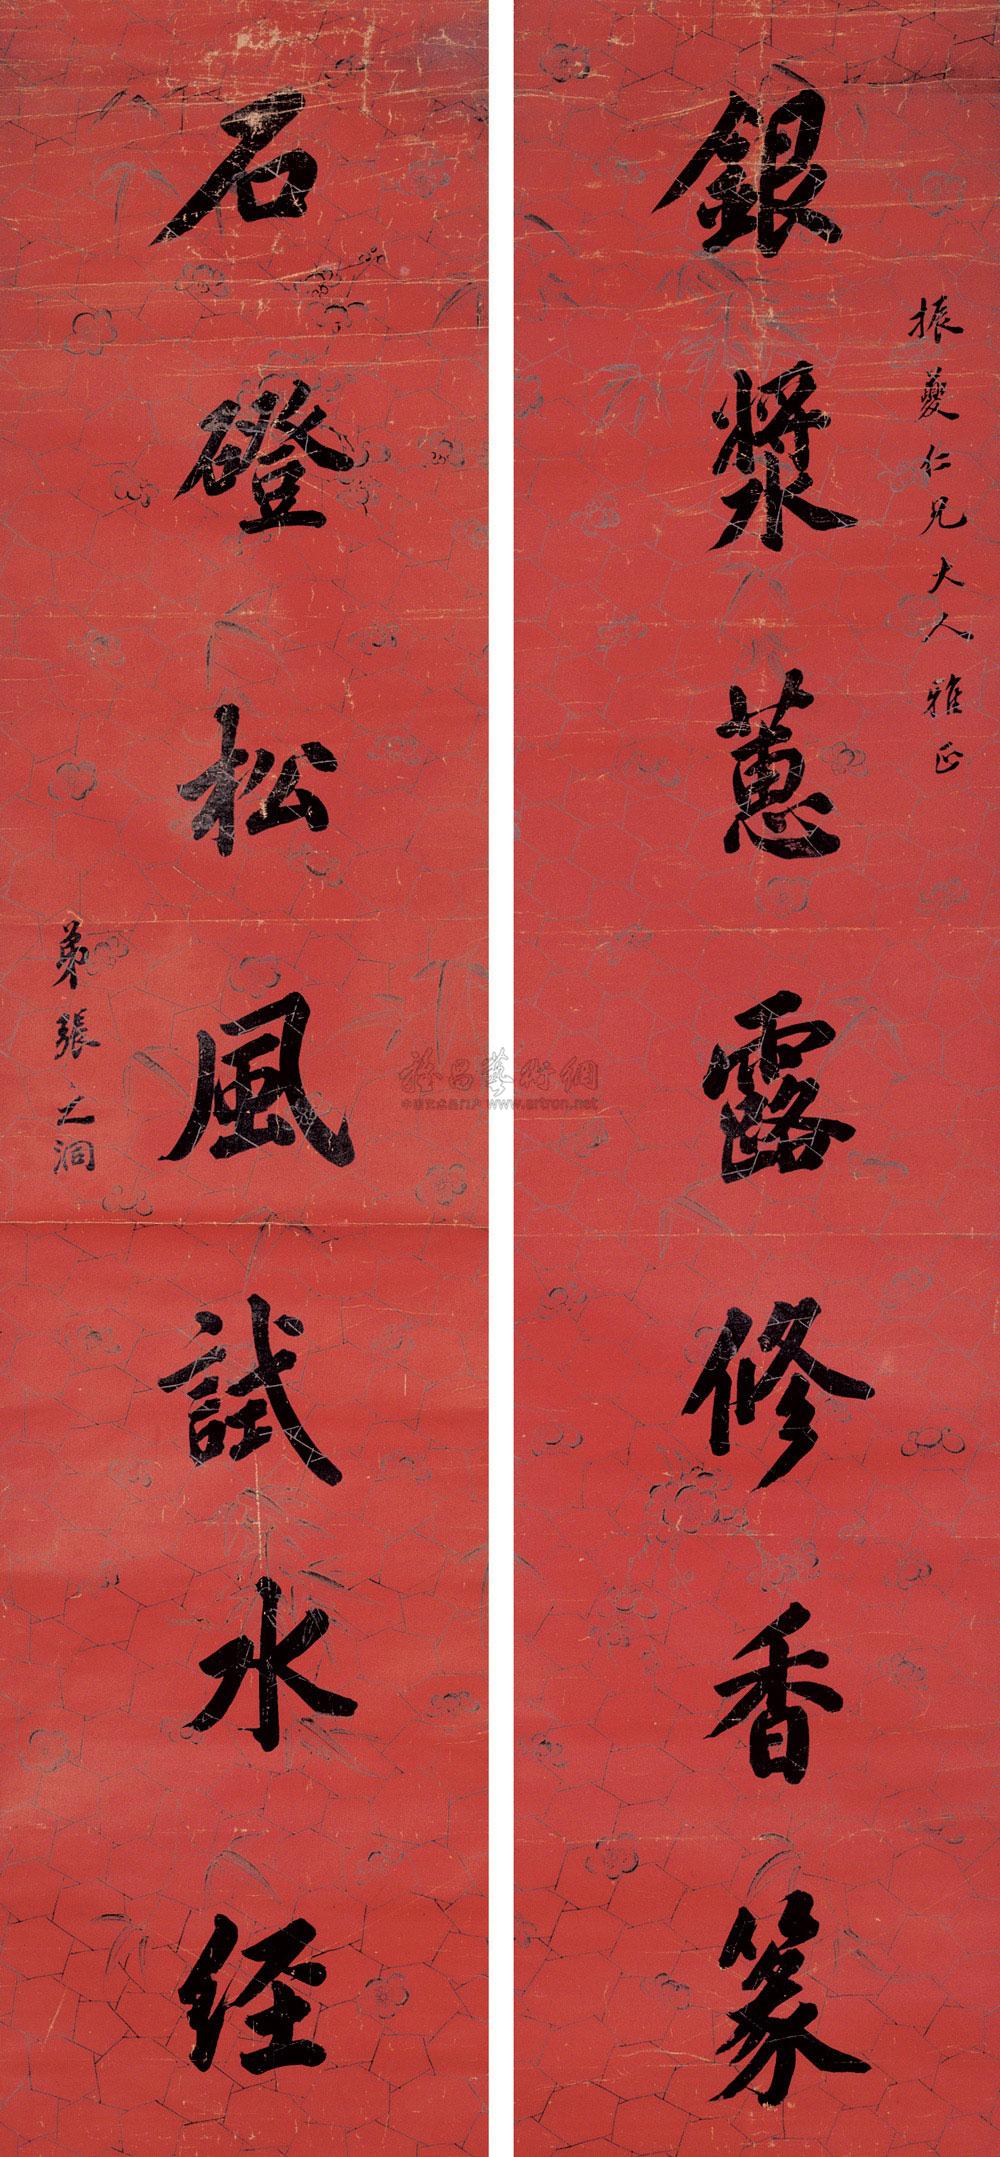 振夔仁兄大人雅正
銀漿蕙露修香篆
石磴松風試水经
弟張之洞
www.artron.net